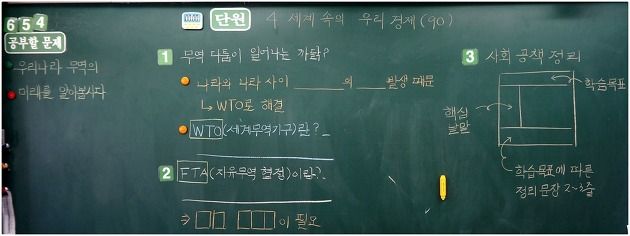 6 5 4
공부할 문제
우리나라 무역의
미래를 알아봅시다
단원 4 세계 속의 우리 경제 (90)
1 무역 다툼이 일어나는 까닭?
나라와 나라 사이 ______의 ____발생 때문
↳ WTO로 해결
WTO(세계무역기구)란?
2 FTA(자유무역 협정)이란?
⇒ □□ □□□이 필요
3 사회 공책 정리
학습목표
핵심
낱말
학습목표에 따른
정리 문장 2~3줄